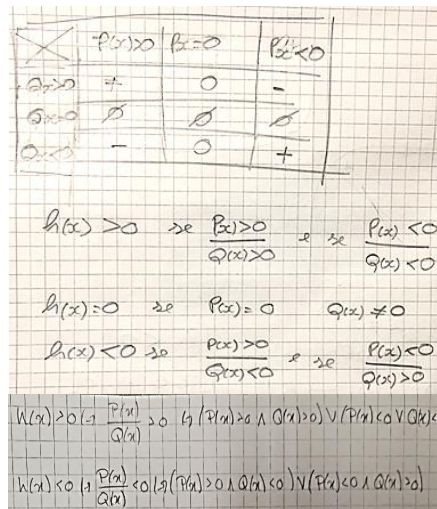 P(x)>0 Px=0 Px<0
Qx>0 + 0 -
Qx=0 ∅ ∅ ∅
Qx<0 - 0 +
h(x) >0 se P(x)>0/Q(x)>0 e se P(x)<0/Q(x)<0
h(x)=0 se P(x)=0 Q(x)≠0
h(x)<0 se P(x)>0/Q(x)<0 e se P(x)<0/Q(x)>0
h(x)>0 (-) P(x)/Q(x) >0 (-) (P(x)>0 ∧ Q(x)>0) ∨ (P(x)<0 ∨ Q(x)<
h(x)<0 (-) P(x)/Q(x) <0 (-) (P(x)>0 ∧ Q(x)<0) ∨ (P(x)<0 ∧ Q(x)>0)